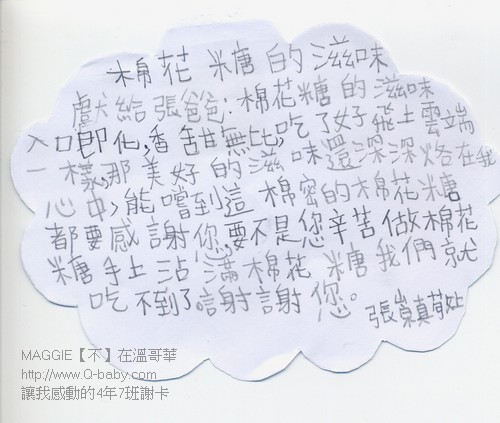 棉花糖的滋味
獻給張爸爸:棉花糖的滋味
入口即化,香甜無比,吃了好飛上雲端
一樣,那美好的滋味還深深烙在我
心中,能嚐到這棉密的棉花糖
都要感謝您,要不是您辛苦做棉花
糖手上沾滿棉花糖我們就
吃不到了。謝謝您。
張 真敬上
MAGGIE【不】在溫哥華
http://www.Q-baby.com
讓我感動的4年7班謝卡